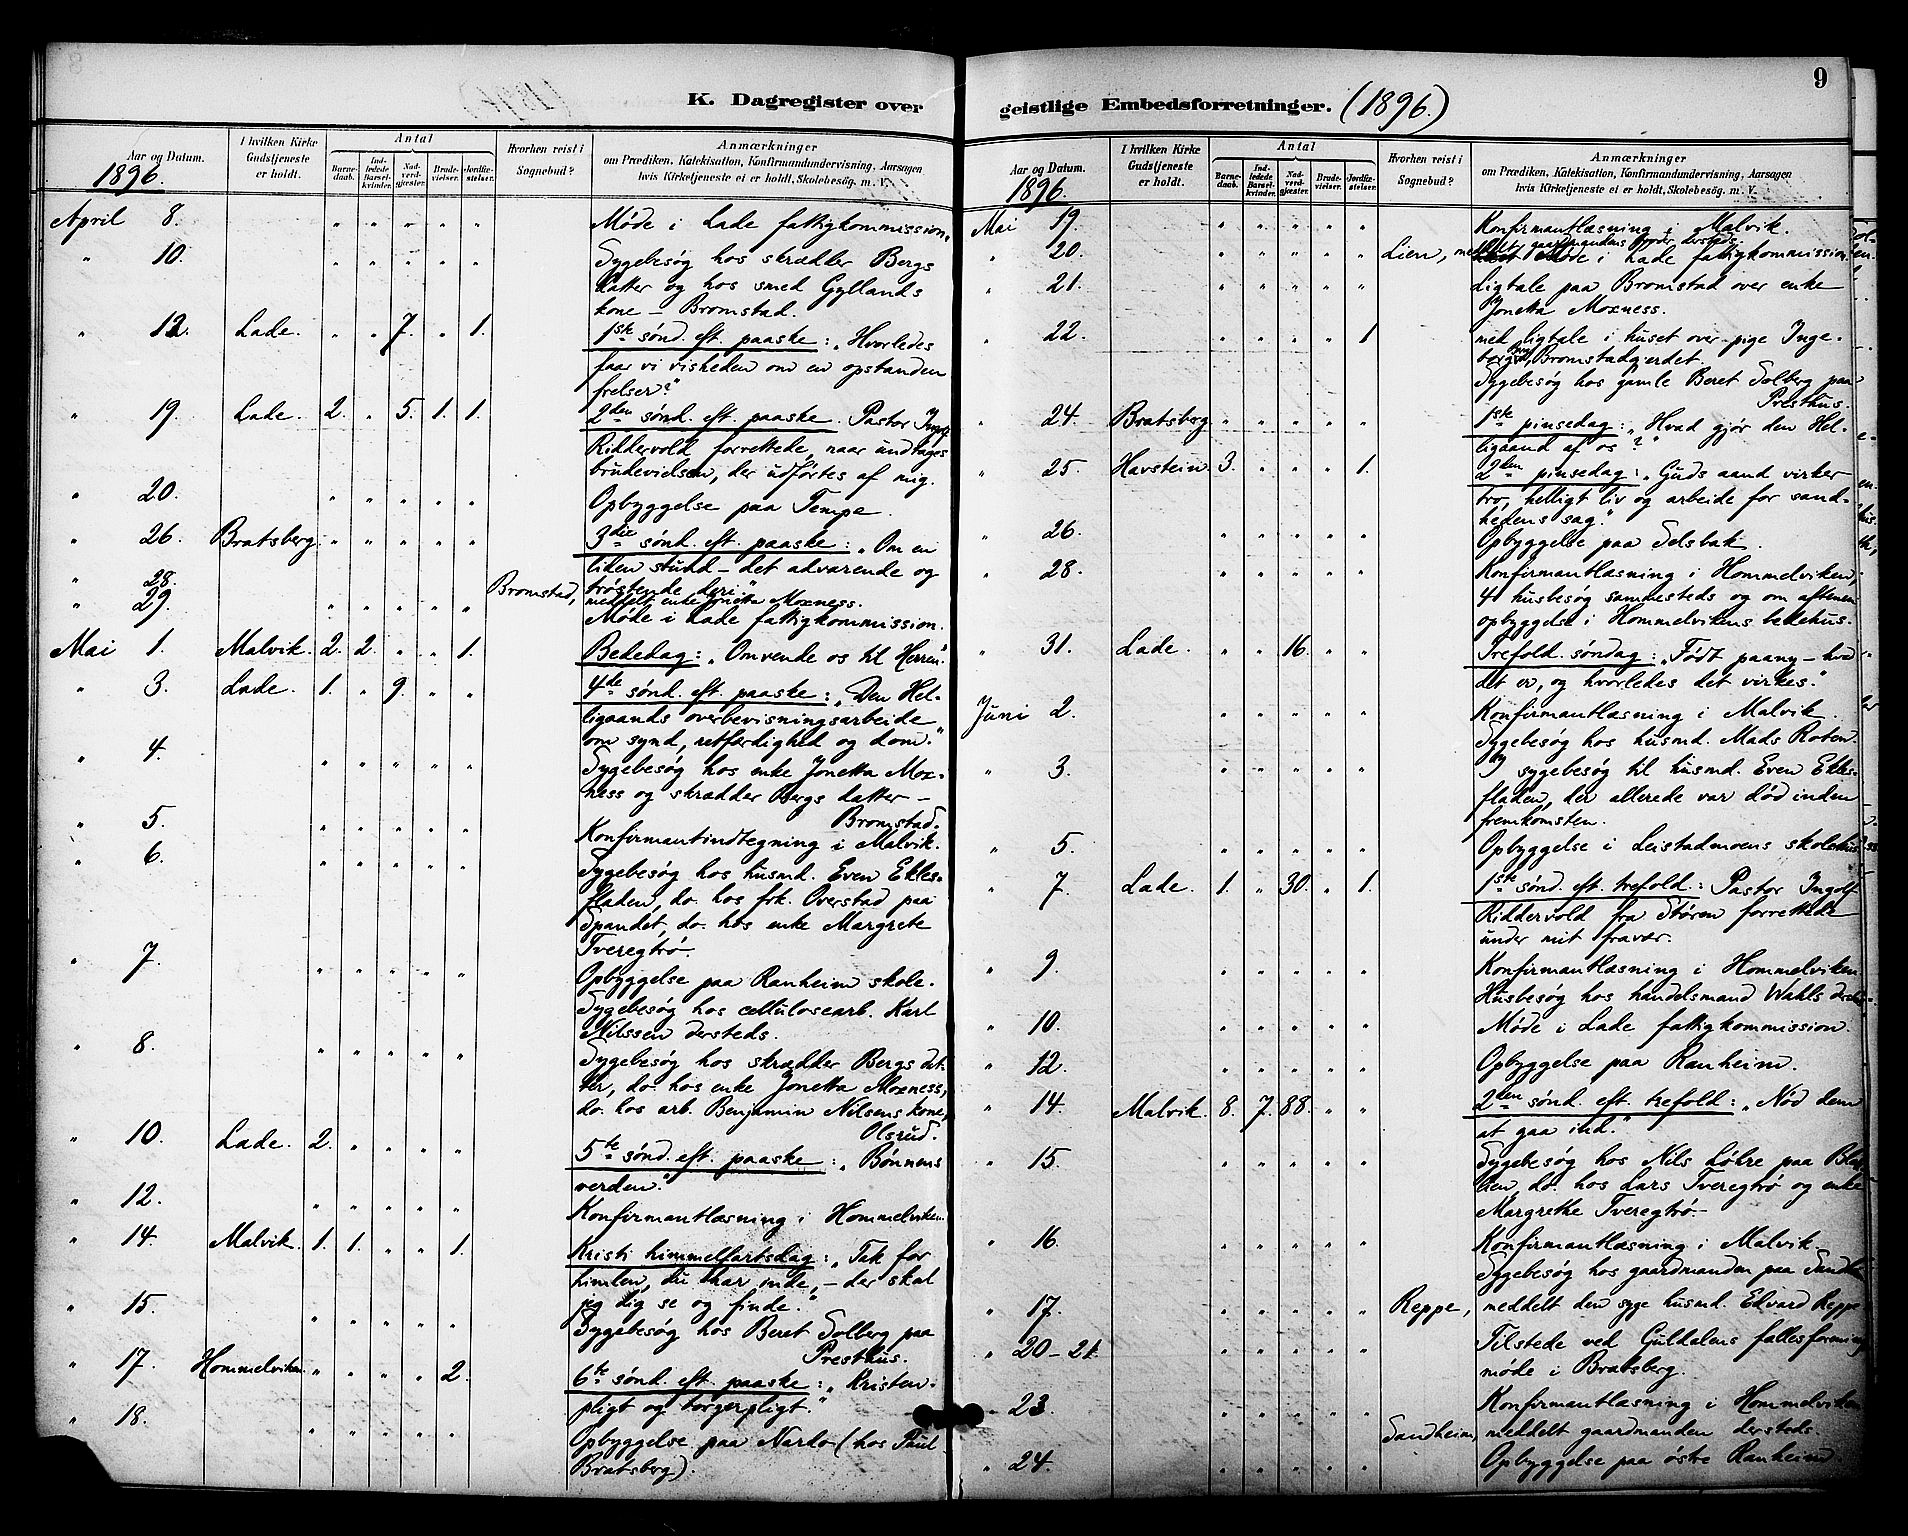 K. Dagregister over
Aar og Datum.
I hvilken Kirke Gudstjeneste er holdt.
Antal
Barnedaab. Indledede Barselkvinder. Nadverdgjester. Brudevielser. Jordfæstelser.
Hvorhen reist i Sognebud?
Anmærkninger
om Prædiken, Katekisation, Konfirmandundervisning, Aarsagen
hvis Kirketjeneste ei er holdt, Skolebesøg. m. V.
1896.
April 8. " " " " " Møde i Lade fattigkommission.
" 10. " " " " " Sygebesøg hos skrædder Bergs
datter og hos smed Gyllands
kone – Bromstad.
" 12. Lade. " " 7. " 1. 1ste sønd. eft. paaske: "Hvorledes
faar vi visheden om en opstanden
frelser?"
" 19. Lade. 2. " 5. 1. 1. 2den sønd. eft. paaske. Pastor Ingolf
Riddervold forrettede, naar undtages
brudevielsen, der udførtes af mig.
" 20. " " " " " Opbyggelse paa Tempe.
" 26. Bratsberg. " " " " " 3die sønd. eft. paaske: "Om en
liden stund – det advarende og
trøstende deri"
" 28. Bromstad, meddelt enke Jonetta Moxness.
" 29. " " " " " Møde i Lade fattigkommission.
Mai 1. Malvik. 2. 2. " " 1. Bededag: "Omvende os til Herren"
" 3. Lade. 1. " 9. " " 4de sønd. eft. paaske: "Den Hel-
ligaands overbevisningsarbeide
om synd, retfærdighed og dom."
" 4. " " " " " Sygebesøg hos enke Jonetta Mox-
ness og skrædder Bergs datter –
Bromstad.
" 5. " " " " " Konfirmantindtegning i Malvik.
" 6. " " " " " Sygebesøg hos husmd. Even Ekles-
fladen, do. hos frk. Overstad paa
Spandet, do. hos enke Margrete
Tveregtrø.
" 7. " " " " " Opbyggelse paa Ranheim skole.
Sygebesøg hos cellulosearb. Karl
Nilssen dersteds.
" 8. " " " " " Sygebesøg hos skrædder Bergs dat-
ter, do. hos enke Jonetta Moxness,
do. hos arb. Benjamin Nilsens kone,
Olsrud.
" 10. Lade. 2. " " " " 5te sønd. eft. paaske: "Bønnens
verden."
" 12. " " " " " Konfirmantlæsning i Hommelviken.
" 14. Malvik. 1. 1. " " 1. Kristi himmelfartsdag: "Tak for
himlen, du har inde, – der skal
jeg dig se og finde."
" 15. " " " " " Sygebesøg hos Beret Solberg paa
Presthus.
" 17. Hommelviken. " " " " 2. 6te sønd. eft. paaske: "Kristen-
pligt og borgerpligt."
" 18. " " " " " Opbyggelse paa Nardo (hos Paul
Bratsberg).
geistlige Embedsforretninger. (1896.)
9
Aar og Datum.
I hvilken Kirke Gudstjeneste er holdt.
Antal
Barnedaab. Indledede Barselkvinder. Nadverdgjester. Brudevielser. Jordfæstelser.
Hvorhen reist i Sognebud?
Anmærkninger
om Prædiken, Katekisation, Konfirmandundervisning, Aarsagen
hvis Kirketjeneste ei er holdt, Skolebesøg. m. V.
1896.
Mai 19. " " " " " Konfirmantlæsning i Malvik.
" 20. " " " " " Lien, meddelt gaardmandens dersteds.
Møde i Lade fattigkommission.
" 21. " " " " " Ligtale paa Bromstad over enke
Jonetta Moxness.
" 22. " " " " 1 med ligtale i huset over pige Inge-
borg Bromstadgjerdet.
Sygebesøg hos gamle Beret Solberg paa
Presthus.
" 24. Bratsberg. " " " " " 1ste pinsedag: "Hvad gjør den Hel-
ligaand af os?"
" 25. Havstein. 3. " " " 1. 2den pinsedag: "Guds aand virker
tro, helligt liv og arbeide for sand-
hedens sag."
" 26. " " " " " Opbyggelse paa Selsbak.
" 28. " " " " " Konfirmantlæsning i Hommelviken,
4 husbesøg sammesteds og om aftenen
opbyggelse i Hommelvikens bedehus.
" 31. Lade. " " 16. " " Trefold. søndag: "Født paany – hva
det er, og hvorledes det virkes."
Juni 2. " " " " " Konfirmantlæsning i Malvik.
Sygebesøg hos husmd. Mads Roten.
" 3. " " " " " I sygebesøg til husmd. Even Ekles-
fladen, der allerede var død inden
fremkomsten.
" 5. " " " " " Opbyggelse i Leistadmoens skolehus
" 7. Lade. 1. " 30. " 1. 1ste sønd. eft. trefold: Pastor Ingolf
Riddervold fra Støren forrettede
under mit fravær.
" 9. " " " " " Konfirmantlæsning i Hommelviken
Husbesøg hos handelsmand Wahls
" 10. " " " " " Møde i Lade fattigkommission.
" 12. " " " " " Opbyggelse paa Ranheim.
" 14. Malvik. 8. 7. 88. " " 2den sønd. eft. trefold: "Nød dem
at gaa ind."
" 15. " " " " " Sygebesøg hos Nils Løhre paa
do. hos Lars Tveregtrø og enke
Margrethe Tveregtrø.
" 16. " " " " " Konfirmantlæsning i Malvik.
Sygebesøg hos gaardmanden paa
" 17. " " " " " Reppe, meddelt den syge husmd. Edvard Reppe
" 20–21. " " " " " Tilstede ved Guldalens fællesforenings
møde i Bratsberg.
" 23. " " " " " Konfirmantlæsning i Hommelviken
Sandheim, meddelt gaardmanden dersteds.
" 24. " " " " " Opbyggelse paa østre Ranheim.